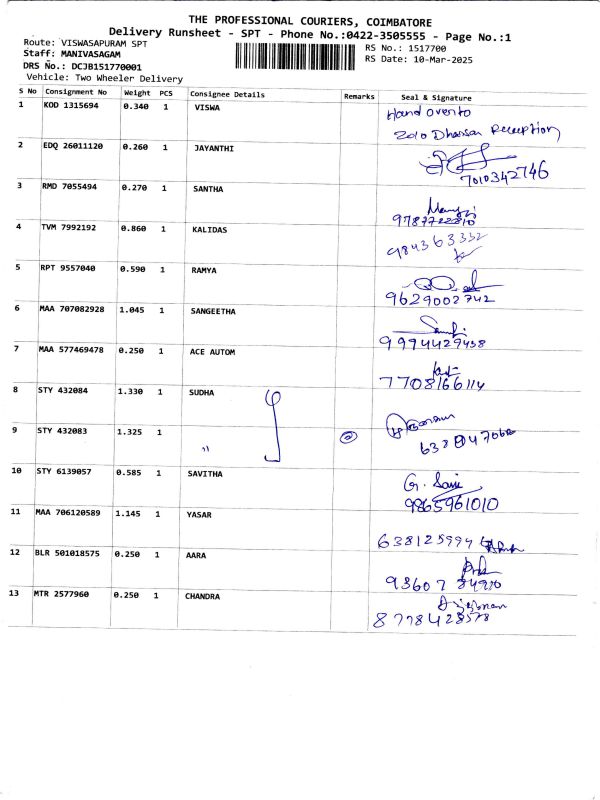 THE PROFESSIONAL COURIERS, COIMBATORE
Delivery Runsheet - SPT - Phone No.:0422-3505555 - Page No.:1
Route: VISWASAPURAM SPT
RS No.: 1517700
Staff: MANIVASAGAM
RS Date: 10-Mar-2025
DRS No.: DCJB151770001
Vehicle: Two Wheeler Delivery
S No Consignment No Weight PCS Consignee Details Remarks Seal & Signature
1 KOD 1315694 0.340 1 VISWA Hand over to
Reception
2 EDQ 26011120 0.260 1 JAYANTHI
7010342746
3 RMD 7055494 0.270 1 SANTHA
4 TVM 7992192 0.860 1 KALIDAS
984363332
5 RPT 9557040 0.590 1 RAMYA
9629002742
6 MAA 707082928 1.045 1 SANGEETHA
9994429458
7 MAA 577469478 0.250 1 ACE AUTOM
7708166114
8 STY 432084 1.330 1 SUDHA
9 STY 432083 1.325 1 " 2
10 STY 6139057 0.585 1 SAVITHA
9865961010
11 MAA 706120589 1.145 1 YASAR
12 BLR 501018575 0.250 1 AARA
13 MTR 2577960 0.250 1 CHANDRA
8778428578